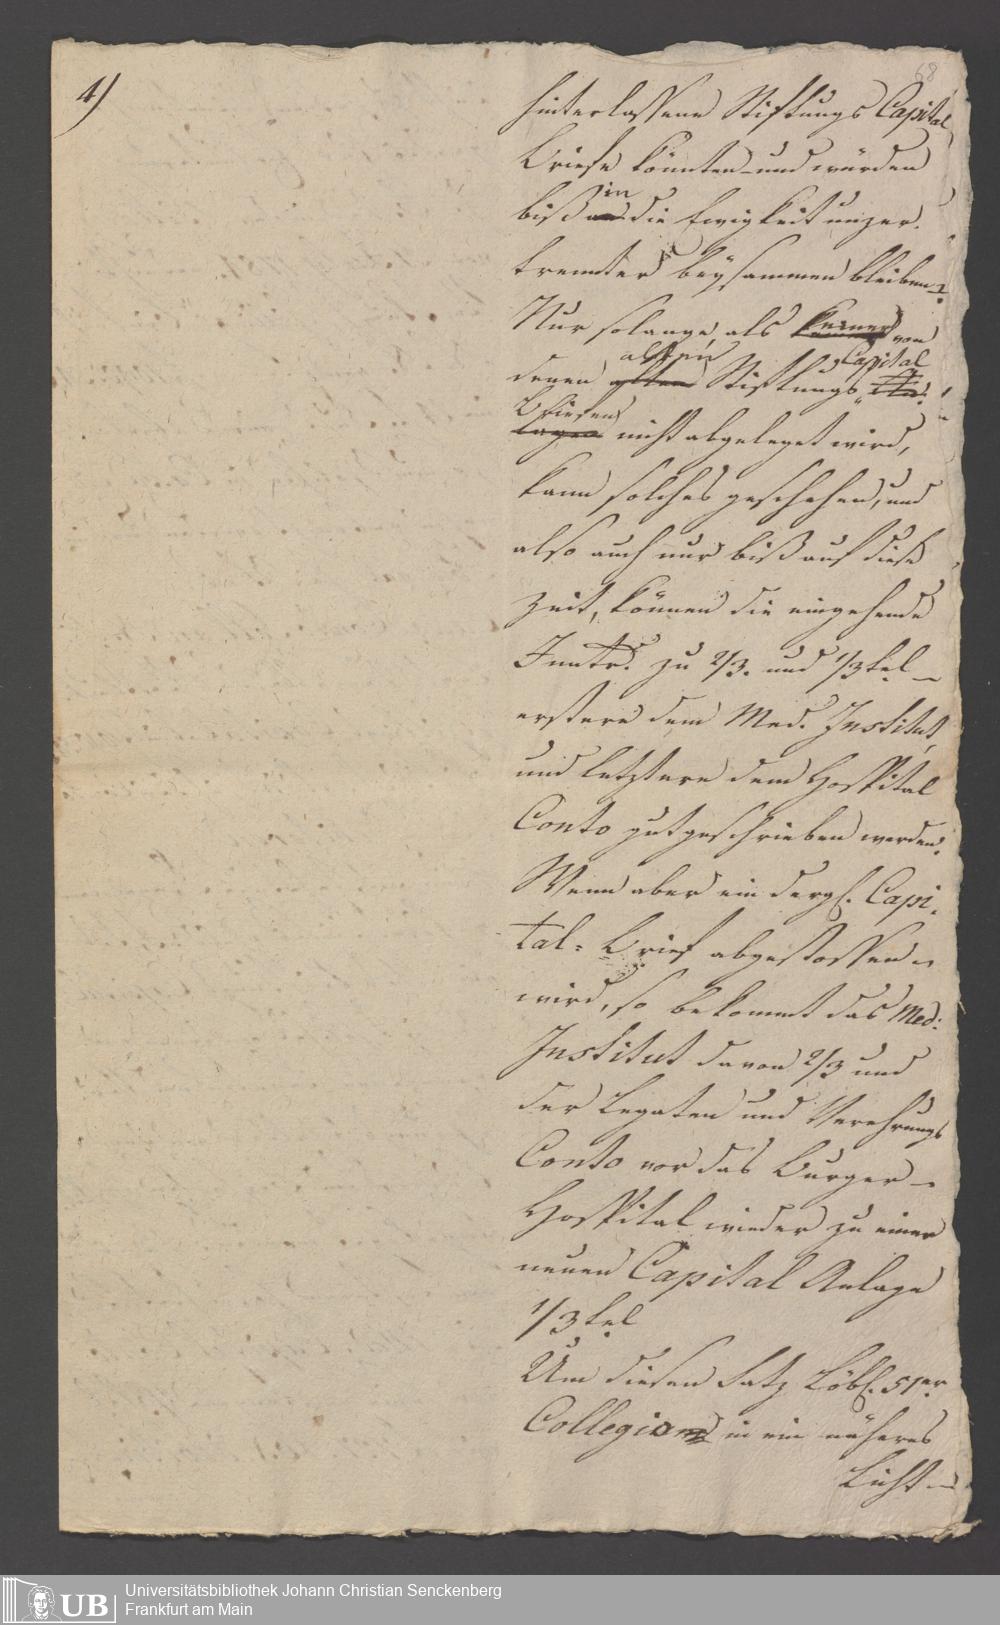 4)
68
hinterlassene Stiftungs Capital
Briefe könnten und würden
biß in die Ewigkeit unzer-
trennter beysammen bleiben?
Nur solange als keiner von
denen alten Stiftungs Capital
Briefen
nicht abgeleget wird,
kann solches geschehen, und
also auch nur biß auf diese
Zeit, können die eingehende
Inntr. zu 2/3. und 1/3tel
erstere dem Med. Institut,
und letztere dem Hospital
Conto gutgeschrieben werden.
Wenn aber ein dergl. Capi-
tal-Brief abgestossen
wird, so bekommt das Med:
Institut davon 2/3 und
der Legaten und Verehrungs
Conto vor das Burger-
Hospital wieder zu einer
neuen Capital Anlage
1/3tel
Um diesen Satz Löbl. 51er
Collegio in ein näheres
Licht
UB Universitätsbibliothek Johann Christian Senckenberg
Frankfurt am Main